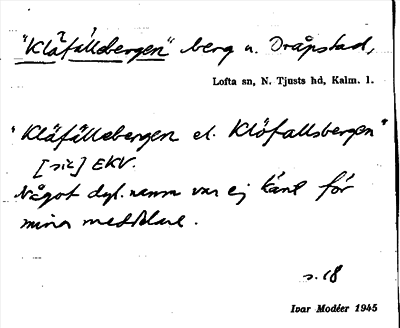 "Kläfällebergen" berg u. Dråpstad,
Lofta sn, N. Tjusts hd, Kalm. l.
"Kläfällebergen el. Klöfallsbergen"
[sic] EKV.
Något dyl. namn var ej känt för
mina meddelare.
s. 18
Ivar Modéer 1945